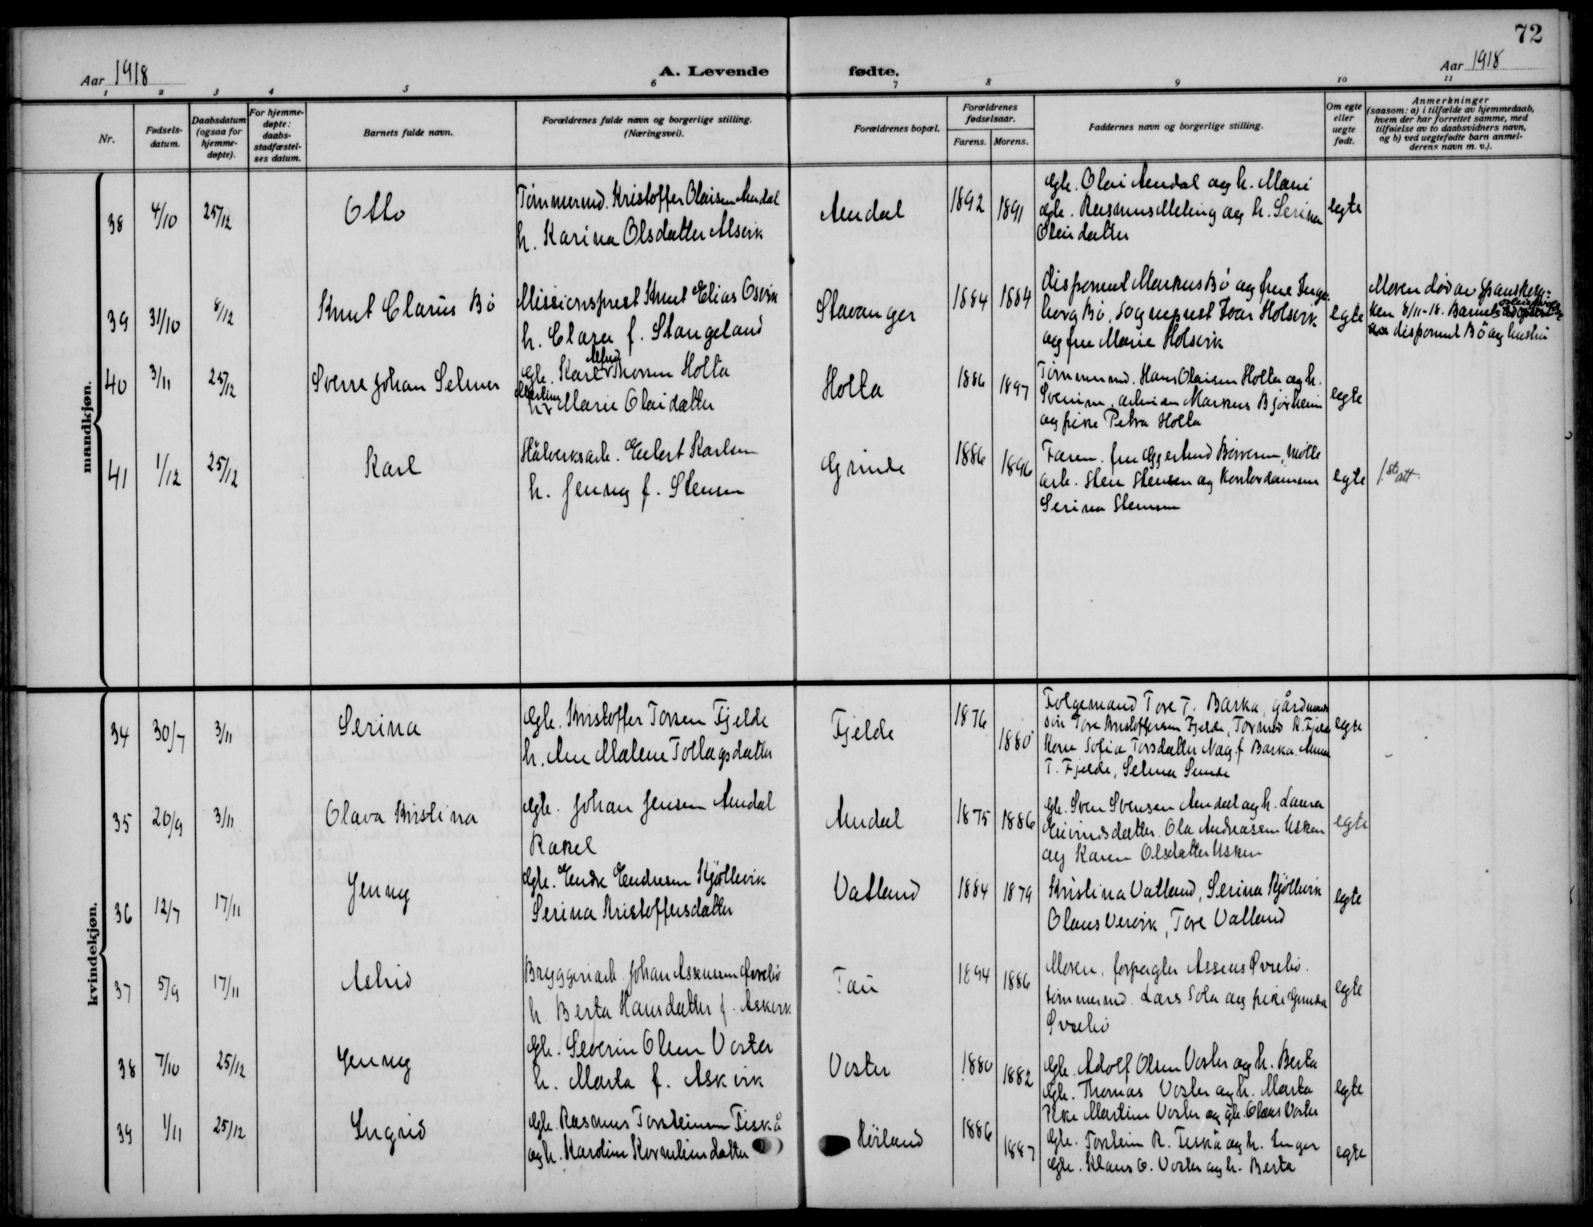 72
Aar 1918
A. Levende fødte.
Aar 1918
1 2 3 4 5 6 7 8 9 10 11
Nr.
Fødsels-
datum.
Daabsdatum
(ogsaa for
hjemme-
døpte).
For hjemme-
døpte:
daabs-
stadfæstel-
ses datum.
Barnets fulde navn.
Forældrenes fulde navn og borgerlige stilling.
(Næringsvei).
Forældrenes bopæl.
Forældrenes
fødselsaar.
Farens. Morens.
Faddernes navn og borgerlige stilling.
Om egte
eller
uegte
født.
Anmerkninger
(saasom: a) i tilfælde av hjemmedaab,
hvem der har forrettet samme, med
tilføielse av to daabsvidners navn,
og b) ved uegtefødte barn anmel-
derens navn m. v.).
mandkjøn.
38 4/10 25/12 Otto
Tømmermd. Kristoffer Olaisen Amdal
h. Karina Olsdatter Alsvik
Amdal 1892 1891
Gbr. Olai Amdal og h. Marie
Gbr. Rasmus Meling og h. Serina
Olaidatter
egte
39 31/10 8/12 Knut Clarus Bø
Missionsprest Knut Elias Osvik
h. Clara f. Stangeland
Stavanger 1884 1884
Disponent Markus Bø og frue Inge-
borg Bø, sogneprest Ivar Holsvik
og frue Marie Holsvik
egte
Moren død av spanskesy-
ken 8/11-18. Barnet
disponent Bø og hustru
40 3/11 25/12 Sverre Johan Selmer
Gbr. Karl Alfred Thorsen Holta
h. Marie Olaidatter
Holta 1886 1897
Tømmermd. Hans Olaisen Holta og h.
arbeider Markus Bjørheim
og pike Petra Holta
egte
41 1/12 25/12 Karl
Stålverksarb. Eilert Karlsen
h. Jenny f. Stensen
Grinde 1886 1896
Faren, frue
arb. Sten Stensen og kontordamen
Serina Stensen
egte
kvindekjøn.
34 30/7 3/11 Serina
Gbr. Kristoffer Torsen Fjelde
h. Ane Malene Tollagsdatter
Fjelde 1876 1880
Folgemand Tore T. Barka, gårdmands
søn Tore Kristoffersen Fjelde, Tormod K. Fjelde
Kone Sofia Torsdatter Nag f. Barka. Anna
T. Fjelde, Selma Sunde
egte
35 20/9 3/11 Olava Kristina
Gbr. Johan Jensen Amdal
Rakel
Amdal 1875 1886
Gbr. Sven Svensen Amdal og h. Laura
Eivindsdatter. Ola Andreassen Usken
og Karen Olsdatter Usken
egte
36 12/7 17/11 Jenny
Gbr. Endre Endresen Kjøllevik
Serina Kristoffersdatter
Valland 1884 1879
Kristina Valland, Serina Kjøllevik
Olaus Vervik, Tore Valland
egte
37 5/9 17/11 Astrid
Bryggeriarb. Johan Assensen Øvrebø
h. Berta Hansdatter f. Askvik
Tau 1894 1886
Moren, forpagter Assens Øvrebø.
tømmermd. Lars Sola og pike Gunda
Øvrebø
egte
38 7/10 25/12 Jenny
Gbr. Severin Olsen Voster
h. Marta f. Askvik
Voster 1880 1882
Gbr. Adolf Olsen Voster og h. Berta
Gbr. Thomas Voster og h. Marta
Pike Martine Voster og gbr. Olaus Voster
egte
39 1/11 25/12 Ingrid
Gbr. Rasmus Torsteinsen Fiskå
og h. Karoline Korneliusdatter
Heiland 1886 1887
Gbr. Torstein R. Fiskå og h. Inger
Gbr. Klaus O. Voster og h. Berta
egte